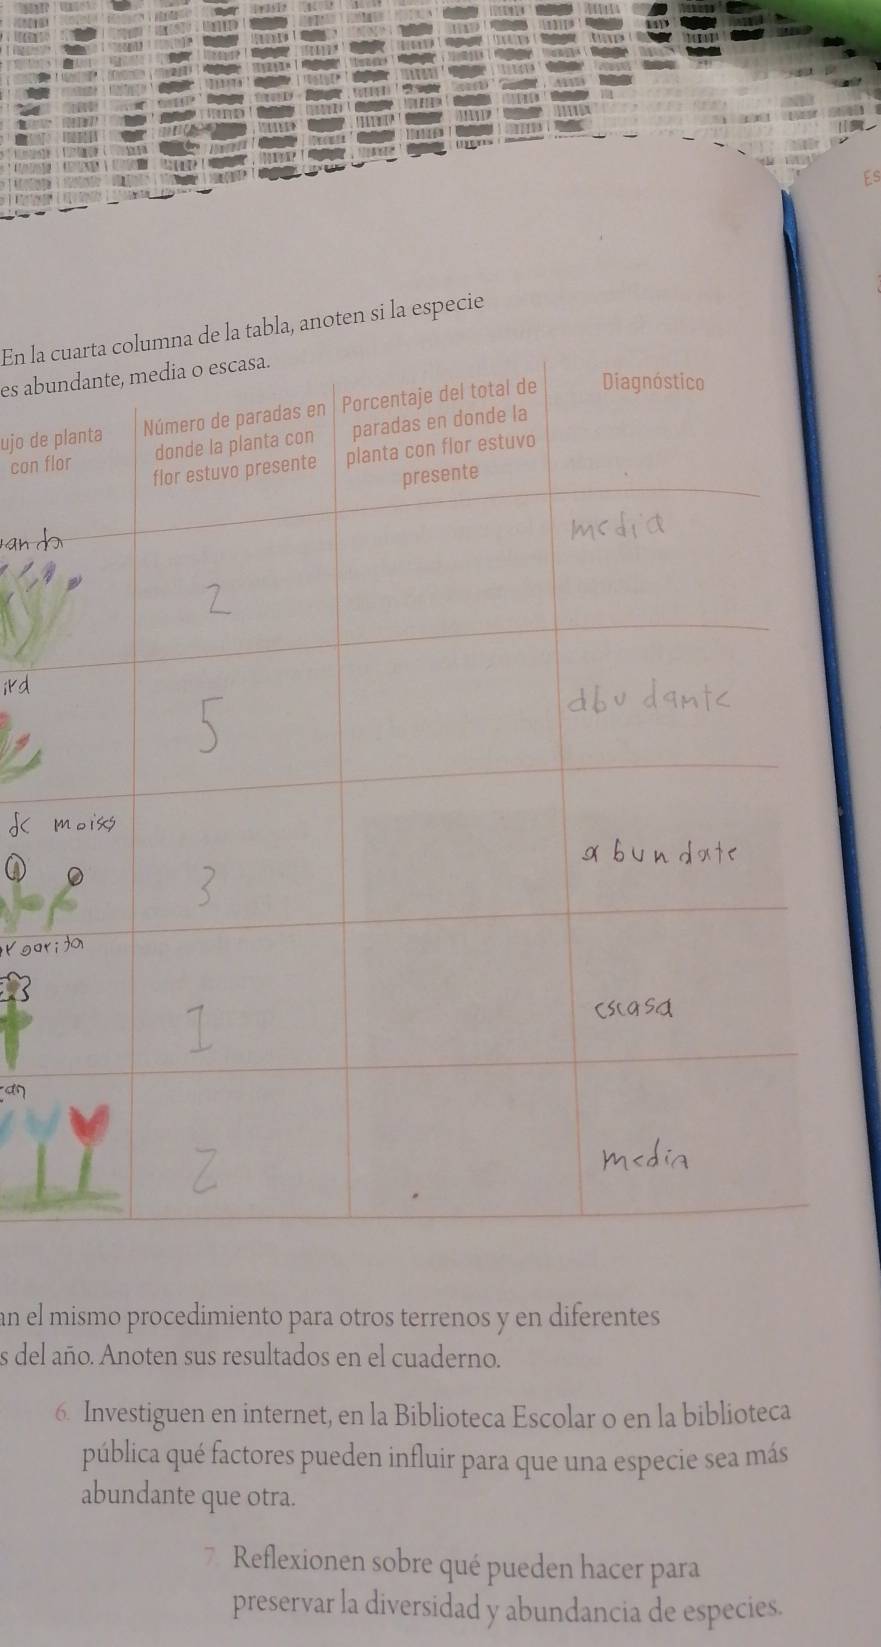 Es
En la cuarta columna de la tabla, anoten si la especie
es abundante, media o escasa.
ujo de planta
con flor
Número de paradas en
donde la planta con
flor estuvo presente
Porcentaje del total de
paradas en donde la
planta con flor estuvo
presente
Diagnóstico
anda
2
media
ird
5
abudante
de moises
3
abundate
rgarita
1
escasa
an
2
media
an el mismo procedimiento para otros terrenos y en diferentes
s del año. Anoten sus resultados en el cuaderno.
6. Investiguen en internet, en la Biblioteca Escolar o en la biblioteca
pública qué factores pueden influir para que una especie sea más
abundante que otra.
7. Reflexionen sobre qué pueden hacer para
preservar la diversidad y abundancia de especies.